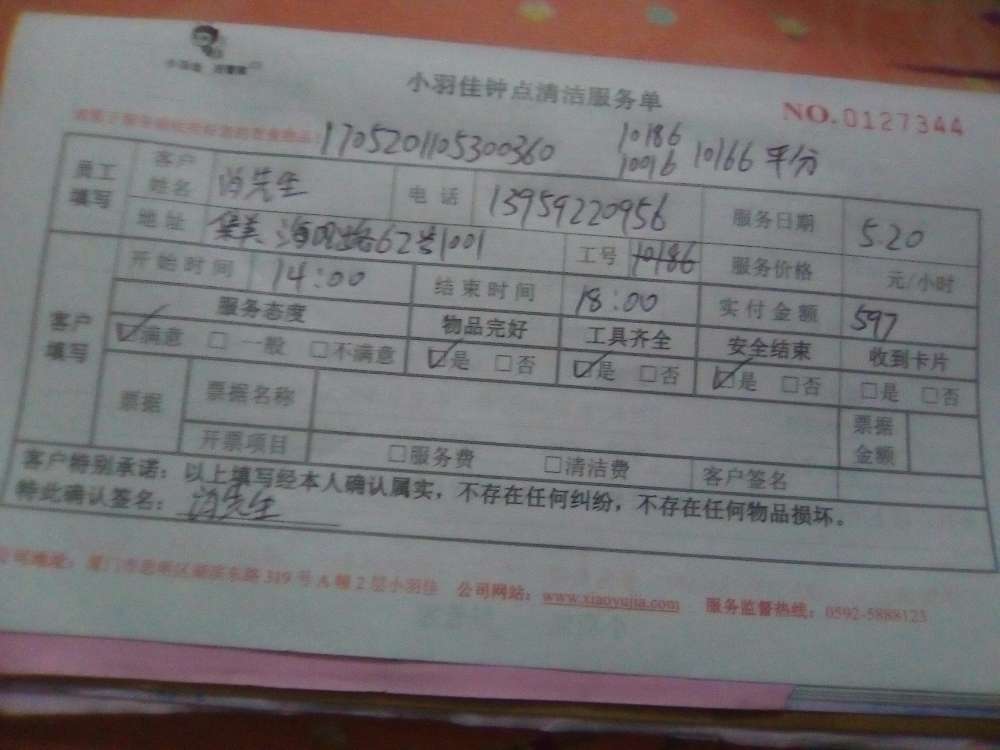 小羽佳钟点清洁服务单
NO.0127344
1705201105300360
10186
10016 10166 平分
员工填写 客户姓名 先生 电话 13959220956 服务日期 5.20
地址 集美 路62号1001 工号 10186 服务价格 元/小时
客户填写 开始时间 14:00 结束时间 18:00 实付金额 597
服务态度 物品完好 工具齐全 安全结束 收到卡片
☑满意 □一般 □不满意 ☑是 □否 ☑是 □否 ☑是 □否 □是 □否
票据 票据名称 票据金额
开票项目 □服务费 □清洁费 客户签名
客户特别承诺:以上填写经本人确认属实,不存在任何纠纷,不存在任何物品损坏。
特此确认签名: 先生
公司地址:厦门市思明区湖滨东路319号A幢2层小羽佳 公司网站:www.xiaoyujia.com 服务监督热线:0592-5888123